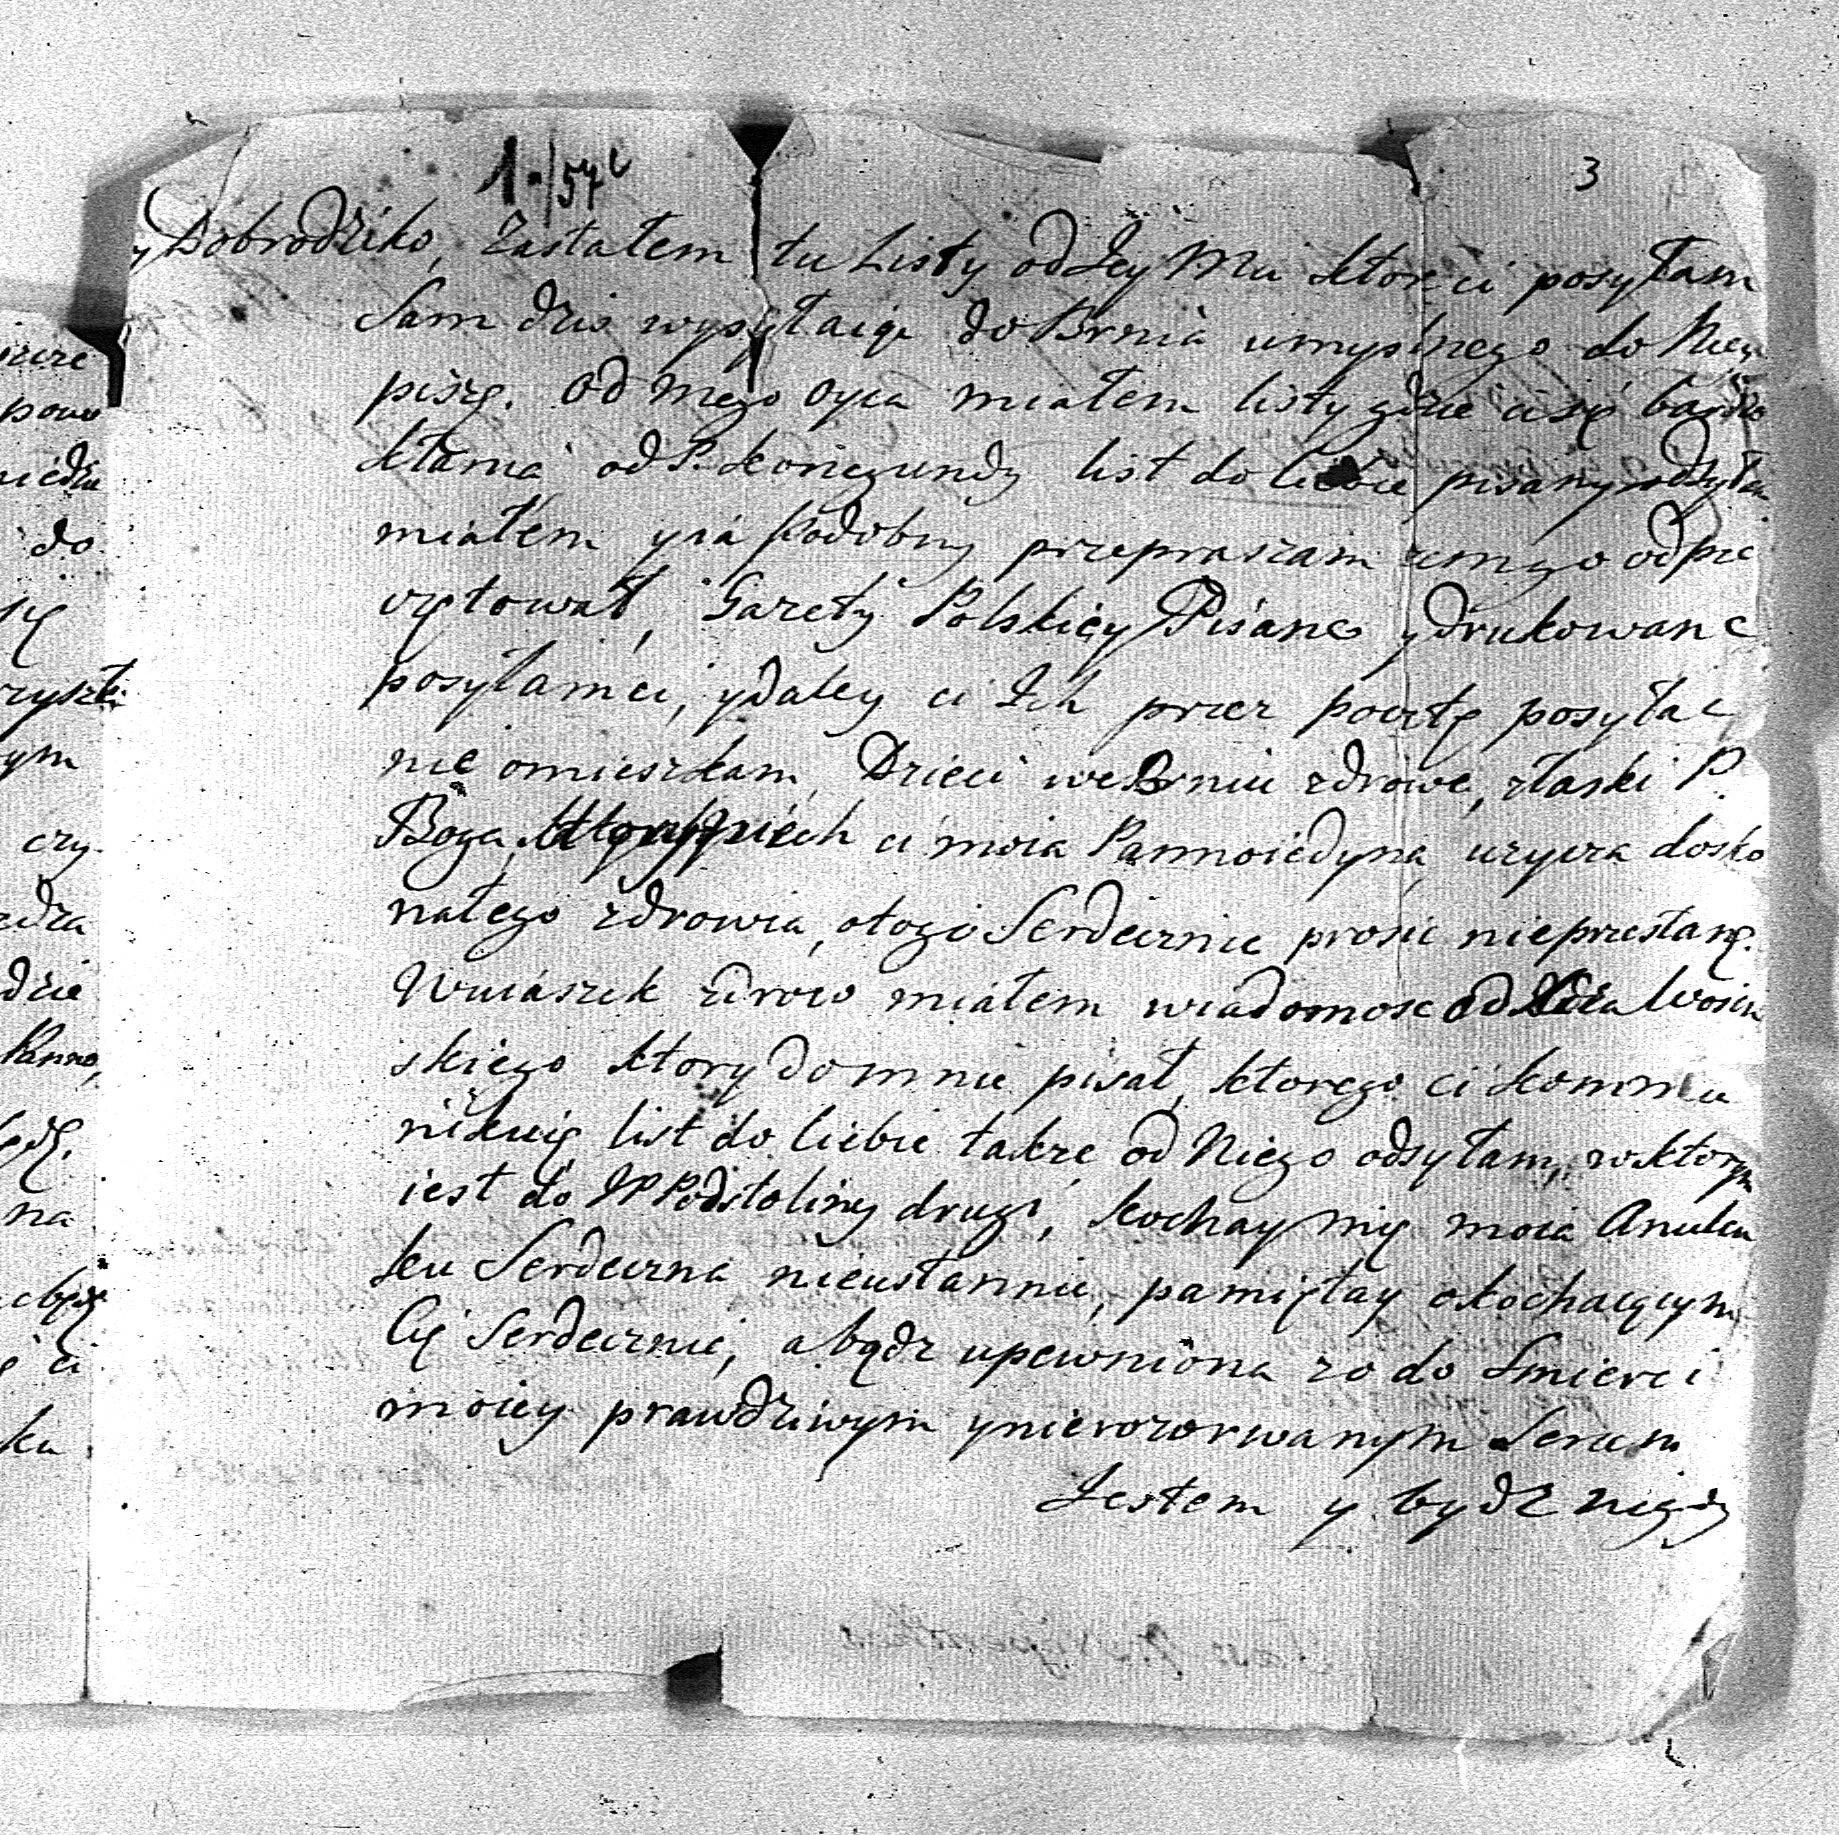 1./57
3
y Dobrodziko, zastałem tu Listy od Jey Mu ktore ci posyłam
Sam dzis wysyłaiąc do Brnia umyslnego do Niey
piszę. Od mego Oyca miałem listy gdzie ci się bardzo
kłania od P. Konegundy list do Ciebie pisany odsyłam
miałem y ia podobny przepraszam zem go odpie
czętował, Gazety Polskiey Pisane y drukowane
posyłam ci, y daley ci Ich przez pocztę posyłac
nie omieszkam, Dzieci we Brniu zdrowe, z łaski P.
Boga, niech ci moia Panno iedyna uzycza dosko
nałego zdrowia, o togo Serdecznie prosic nieprzestanę.
Wuiaszek zdrow miałem wiadomosc od Wosin
skiego ktory do mnie pisał, ktorego ci kommu
nikuię list do Ciebie takze od Niego odsyłam, w ktorym
iest do JP Podstoliney drugi, kochay mię moia Anulen
ku Serdeczna nieustannie, pamiętay o kochaiącym
Cię Serdecznie, a bądz upewniona zo do Smierci
moiey prawdziwym y nierozorwanym Sercem
Jestem y bydz nigdy
powo
do
ryszki
ym
czy
dzie
Panno,
na
ci
ku